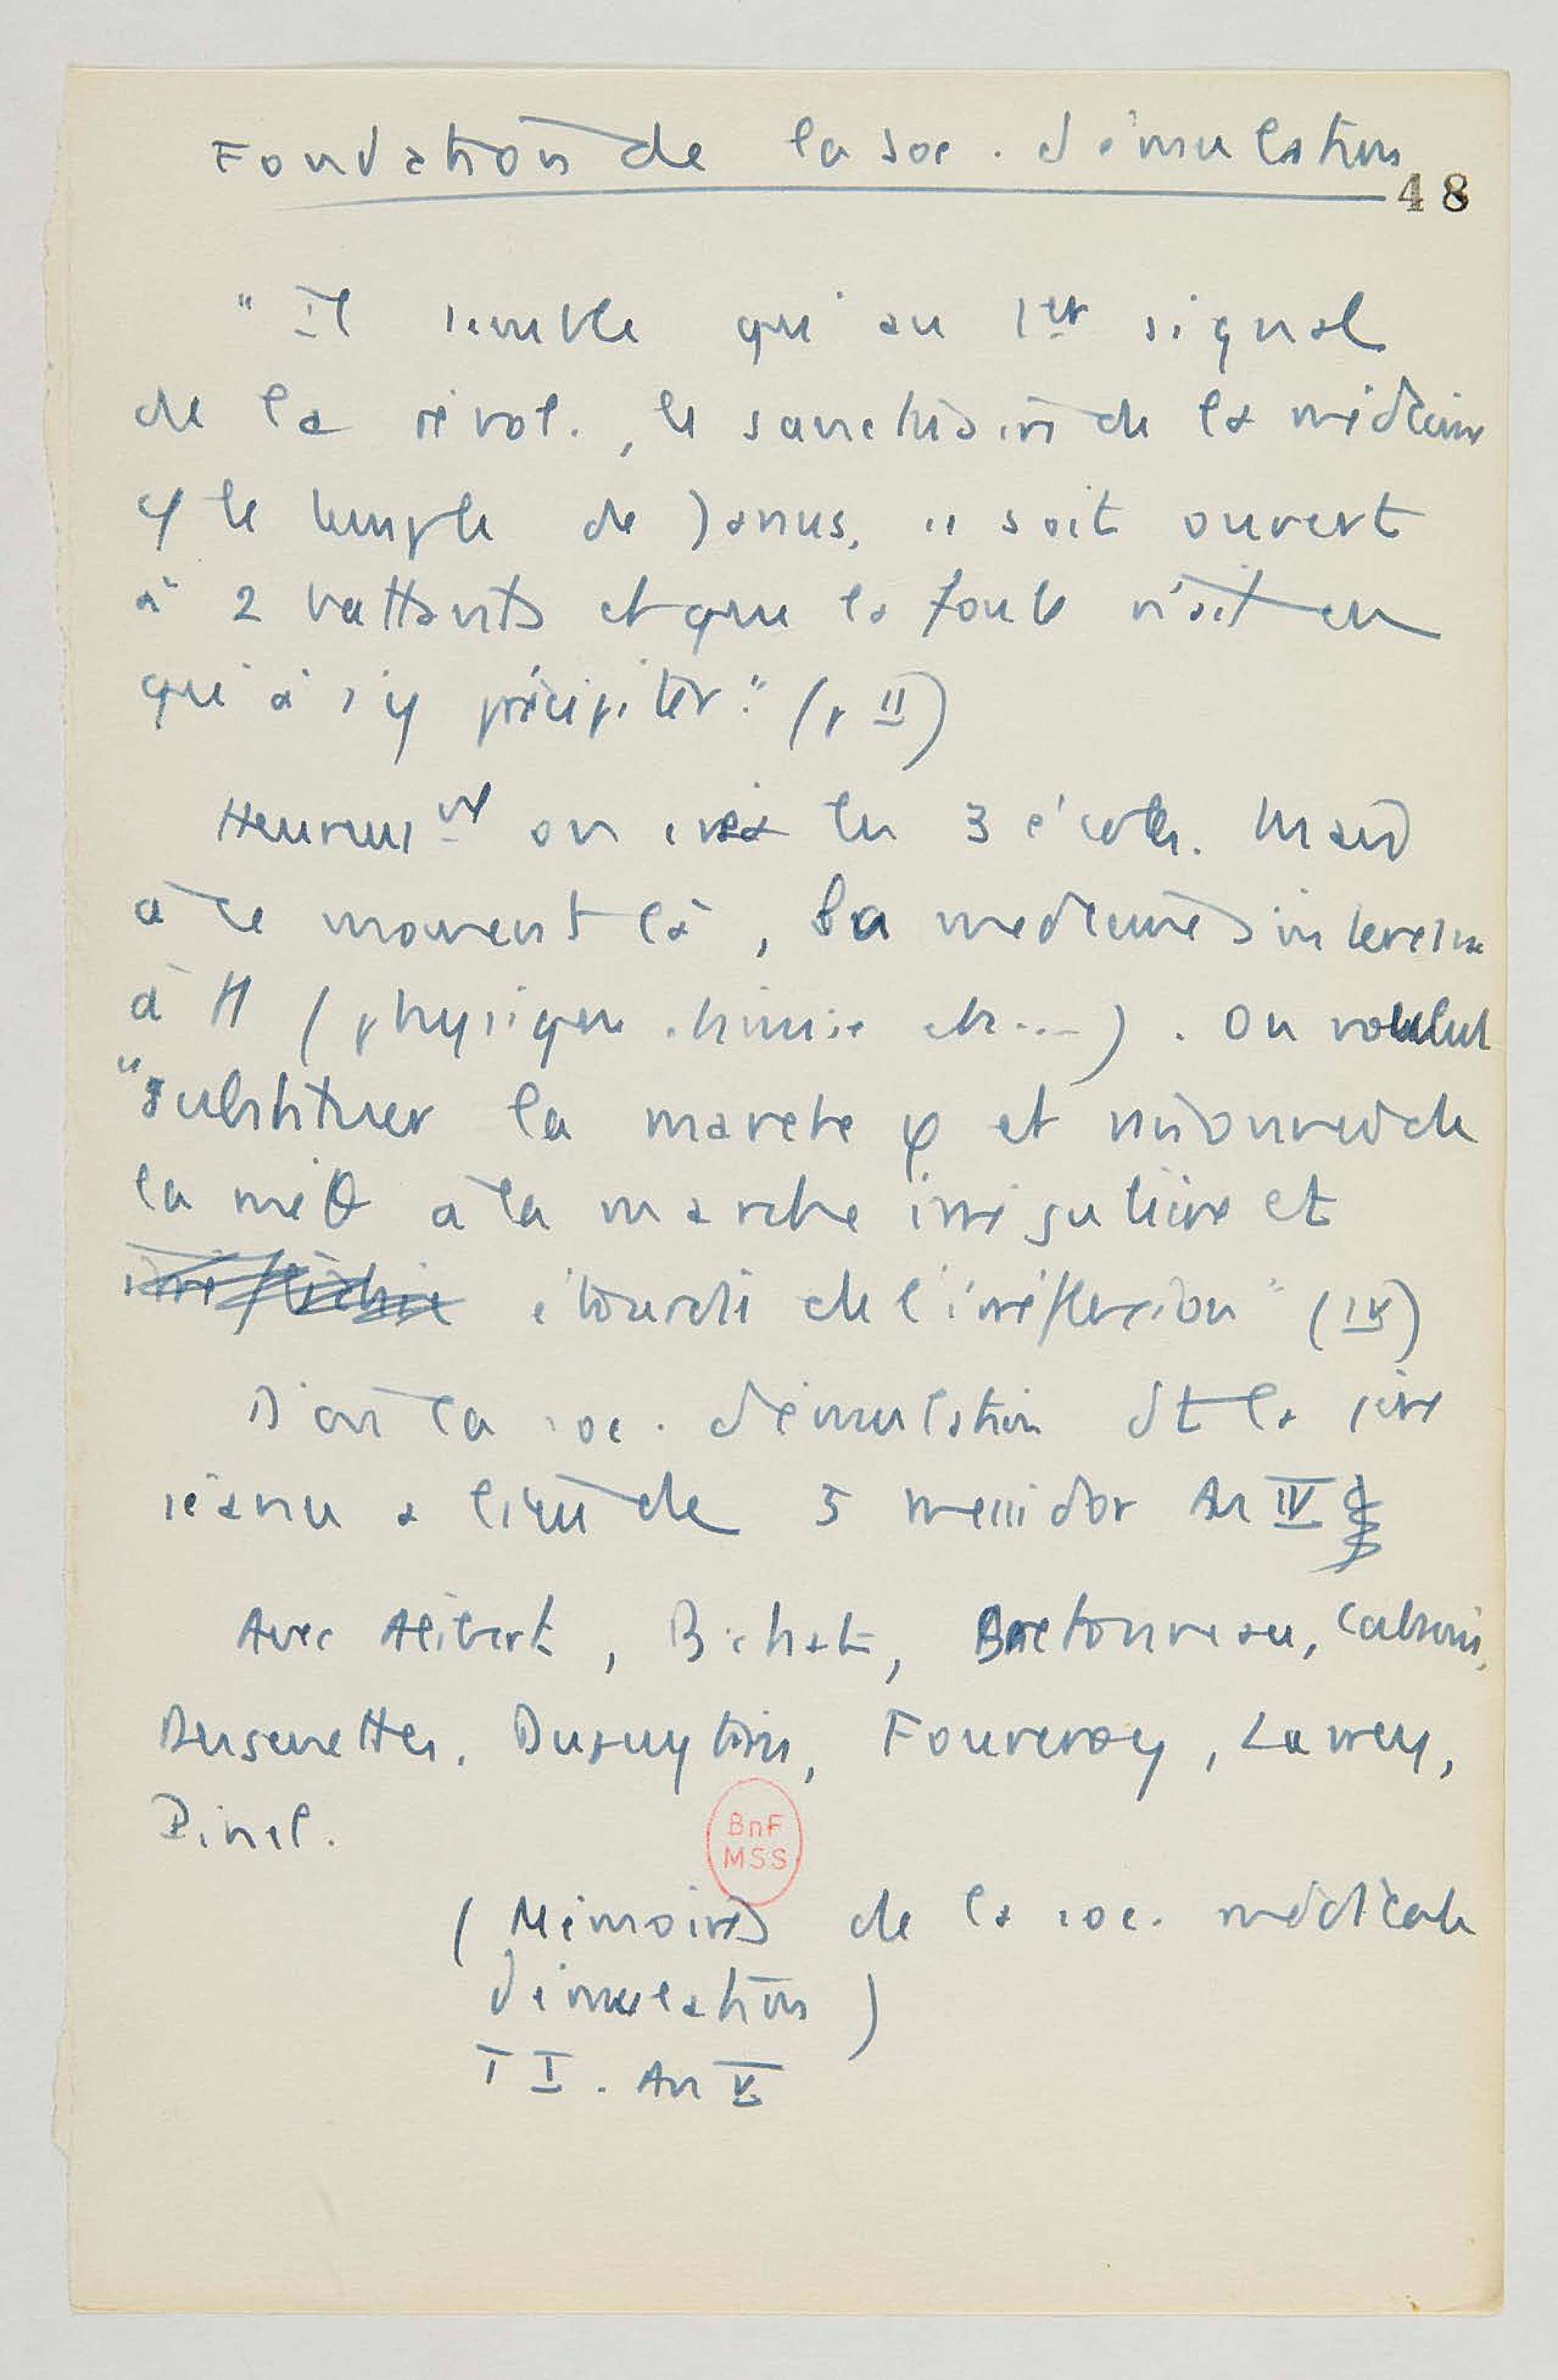 Fondation de la soc. d'émulation
48
"Il semble qu'au 1er signal
de la révol., le sanctuaire de la médecine
φ le temple de Janus, soit ouvert
à 2 battants et que la foule n'ait eu
qu'à s'y précipiter." (p II)
Heureusnt on créa les 3 écoles. Mais
à ce moment là, la médecine s'intéresse
à tt (physique chimie etc...). On voulut
"substituer la marche φ et raisonnée de
la méθ à la marche irrégulière et
irréfléchie étourdie de l'irréflexion" (IV)
D'où la soc. d'émulation dt la 1ère
séance a lieu le 5 messidor An IV
Avec Alibert, Bichat, Bretonneau, Cabanis,
Desgenettes, Dupuytren, Fourcroy, Larrey,
Pinel.
BnF
MSS
(Mémoires de la soc. médicale
d'émulation)
T I. An V